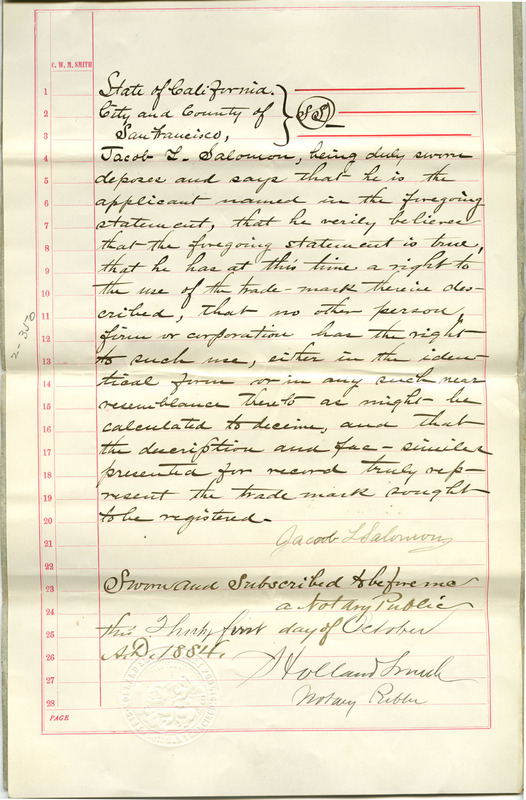 C. W. M. SMITH
1 State of California.
2 City and County of } SS
3 San Francisco,
4 Jacob L. Salomon, being duly sworn
5 deposes and says that he is the
6 applicant named in the foregoing
7 statement, that he verily believes
8 that the foregoing statement is true,
9 that he has at this time a right to
10 the use of the trade-mark therein des-
11 cribed, that no other person,
12 firm or corporation has the right
13 to such use, either in the iden-
14 tical form or in any such near
15 resemblance thereto as might be
16 calculated to deceive, and that
17 the description and fac-similes
18 presented for record truly rep-
19 resent the trade mark sought
20 to be registered.
21 Jacob L Salomon
22
23 Sworn and Subscribed to before me
24 a Notary Public
25 this Thirty first day of October
26 A.D. 1884.
27 Holland Smith
28 Notary Public
PAGE
2-350